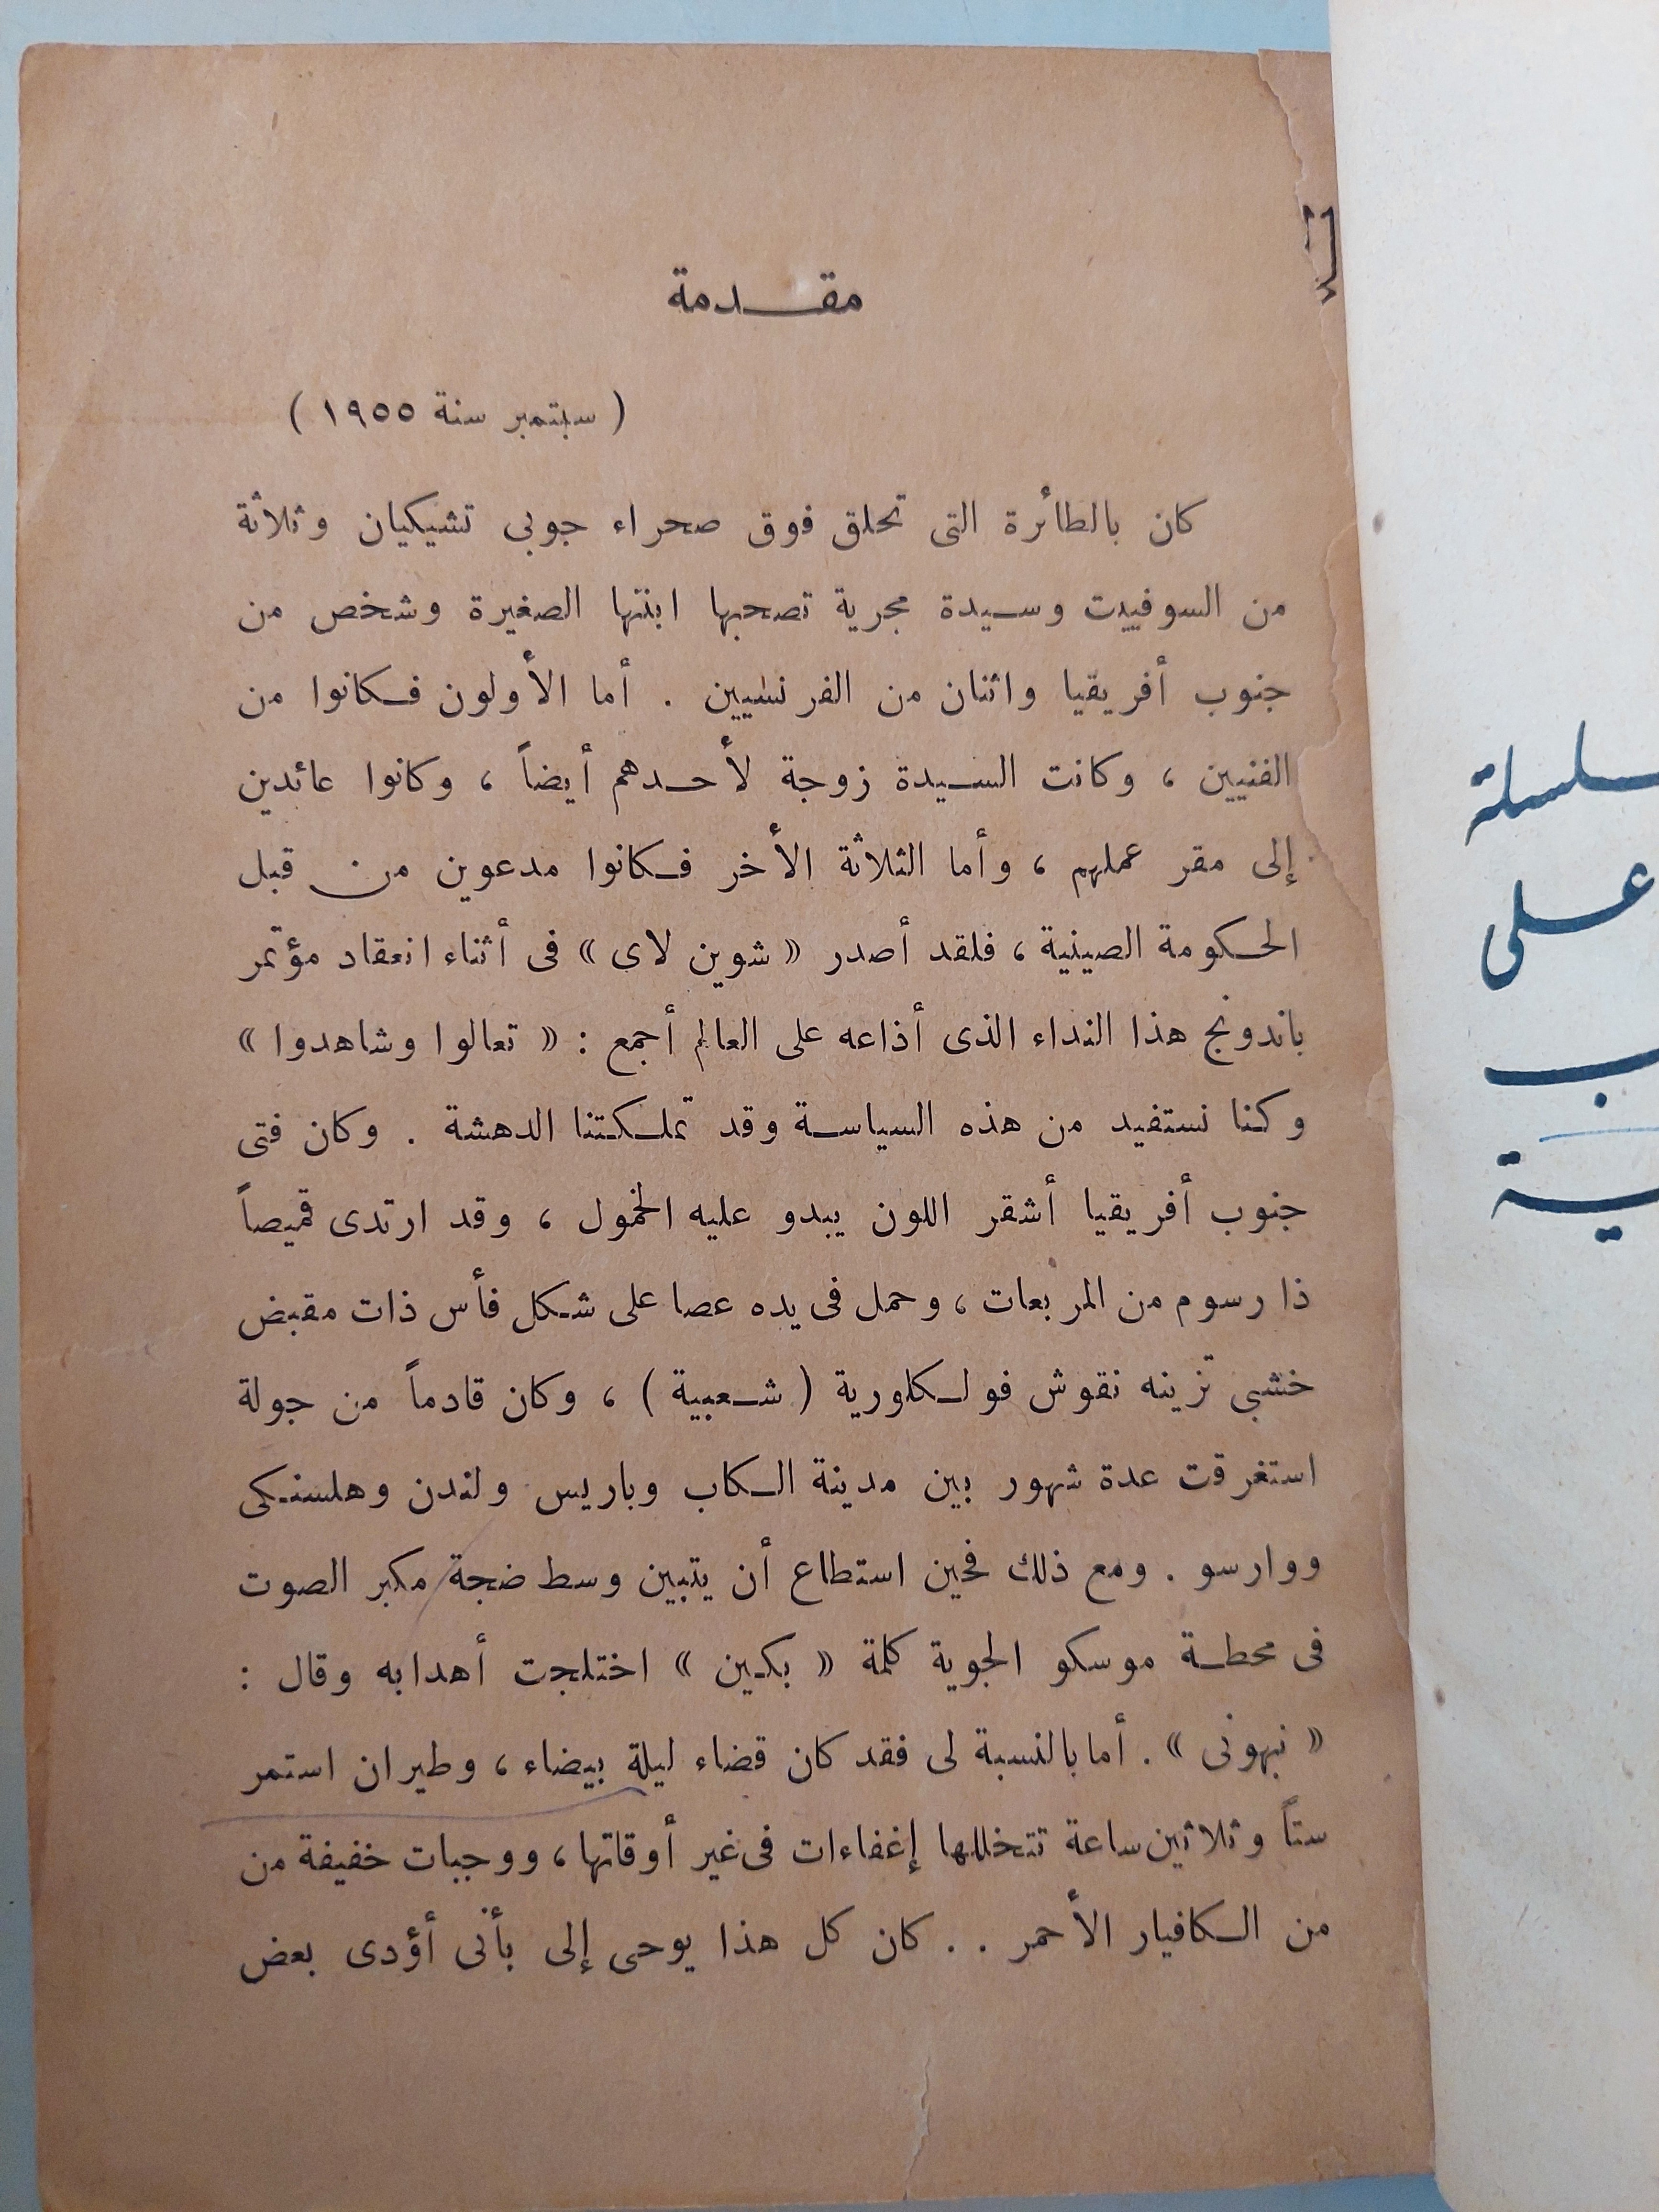 مقدمة
( سبتمبر سنة ١٩٥٥ )
كان بالطائرة التى تحلق فوق صحراء جوبى تشيكيان وثلاثة
من السوفييت وسيدة مجرية تصحبها ابنتها الصغيرة وشخص من
جنوب أفريقيا واثنان من الفرنسيين . أما الأولون فكانوا من
الفنيين ، وكانت السيدة زوجة لأحدهم أيضاً ، وكانوا عائدين
إلى مقر عملهم ، وأما الثلاثة الأخر فكانوا مدعوين من قبل
الحكومة الصينية ، فلقد أصدر « شوين لاى » فى أثناء انعقاد مؤتمر
باندونج هذا النداء الذى أذاعه على العالم أجمع : « تعالوا وشاهدوا »
وكنا نستفيد من هذه السياسة وقد تملكتنا الدهشة . وكان فتى
جنوب أفريقيا أشقر اللون يبدو عليه الخمول ، وقد ارتدى قميصاً
ذا رسوم من المربعات ، وحمل فى يده عصا على شكل فأس ذات مقبض
خشبى تزينه نقوش فولكلورية ( شعبية ) ، وكان قادماً من جولة
استغرقت عدة شهور بين مدينة الكاب وباريس ولندن وهلسنكى
ووارسو . ومع ذلك فحين استطاع أن يتبين وسط ضجة مكبر الصوت
فى محطة موسكو الجوية كلمة « بكين » اختلجت أهدابه وقال :
« نبهونى » . أما بالنسبة لى فقد كان قضاء ليلة بيضاء ، وطيران استمر
ستاً وثلاثين ساعة تتخللها إغفاءات فى غير أوقاتها ، ووجبات خفيفة من
من الكافيار الأحمر . . كان كل هذا يوحى إلى بأنى أؤدى بعض
سلسلة
على